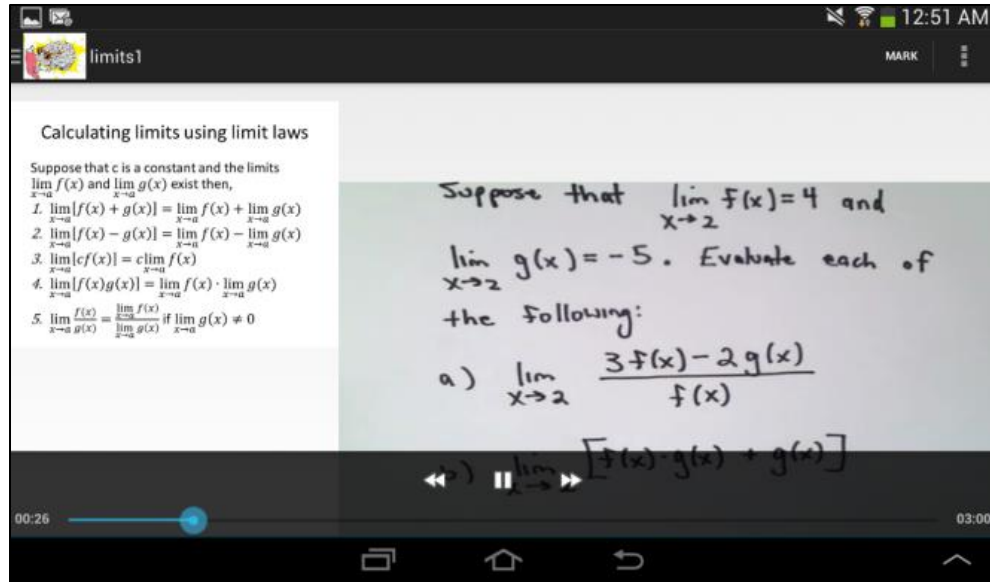 12:51 AM
limits1
MARK
Calculating limits using limit laws
Suppose that c is a constant and the limits
lim x→a f(x) and lim x→a g(x) exist then,
1. lim x→a [f(x) + g(x)] = lim x→a f(x) + lim x→a g(x)
2. lim x→a [f(x) − g(x)] = lim x→a f(x) − lim x→a g(x)
3. lim x→a [cf(x)] = c lim x→a f(x)
4. lim x→a [f(x)g(x)] = lim x→a f(x) · lim x→a g(x)
5. lim x→a f(x)/g(x) = lim x→a f(x) / lim x→a g(x) if lim x→a g(x) ≠ 0
Suppose that lim x→2 f(x) = 4 and
lim x→2 g(x) = -5. Evaluate each of
the following:
a) lim x→2 3f(x) - 2g(x) / f(x)
b) lim x→2 [f(x)·g(x) + g(x)]
00:26
03:00